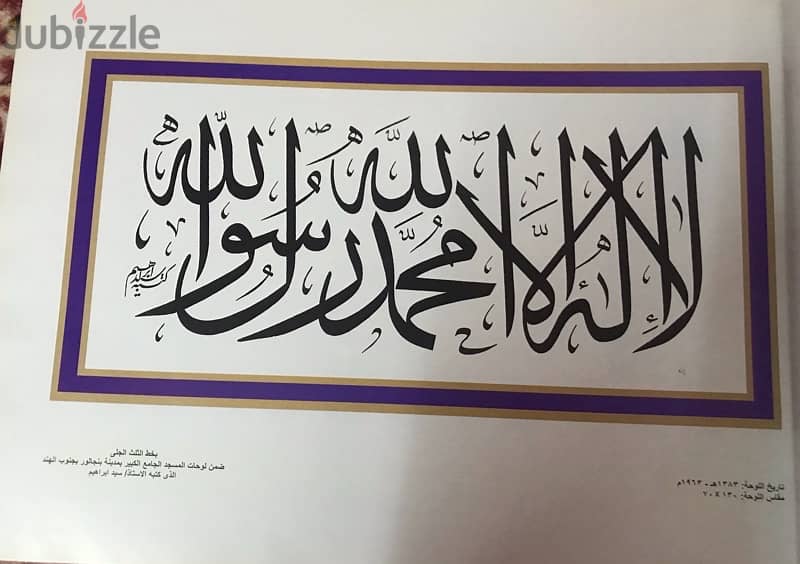 dubizzle
لا إله إلا الله محمد رسول الله
كتبه سيد ابراهيم
بخط الثلث الجلى
ضمن لوحات المسجد الجامع الكبير بمدينة بنجالور بجنوب الهند
الذى كتبه الاستاذ/ سيد ابراهيم
تاريخ اللوحة: ١٣٨٣هـ - ١٩٦٣م
مقاس اللوحة: ١٣٠ × ٧٠